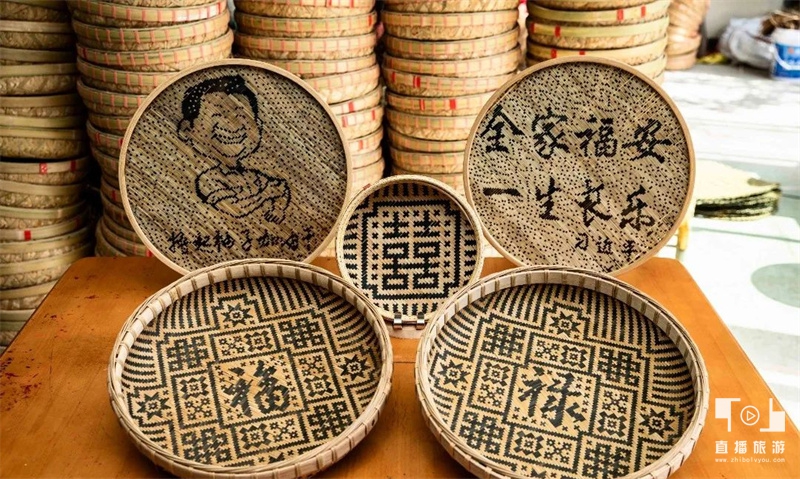 撸起袖子加油干
全家福安
一生长乐
习近平
囍
福
禄
直播旅游
www.zhibolvyou.com